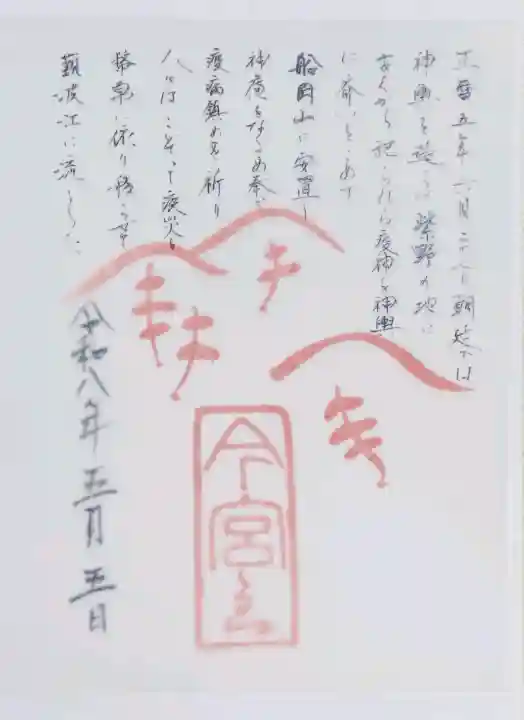 正暦五年六月二十七日朝廷では
神輿を造って紫野の地に
古くから祀られた疫神を神輿
に斎いこめて
船岡山に安置し
神慮をなぐさめ奉り
疫病鎮めを祈り
人々はこぞって疫災を
幣帛に依り移らせ
難波江に流しました
令和八年五月五日
今宮